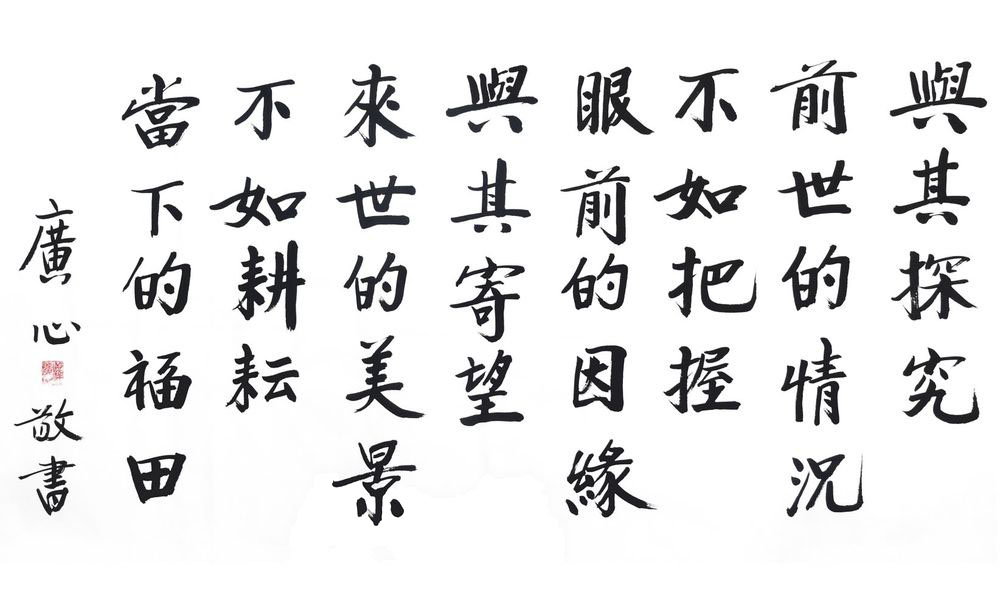 與其探究
前世的情況
不如把握
眼前的因緣
與其寄望
來世的美景
不如耕耘
當下的福田
廣心敬書